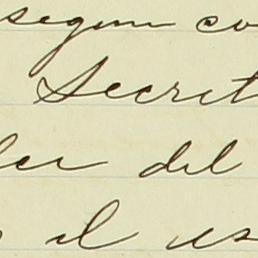 segun co
Secret
der del
el us